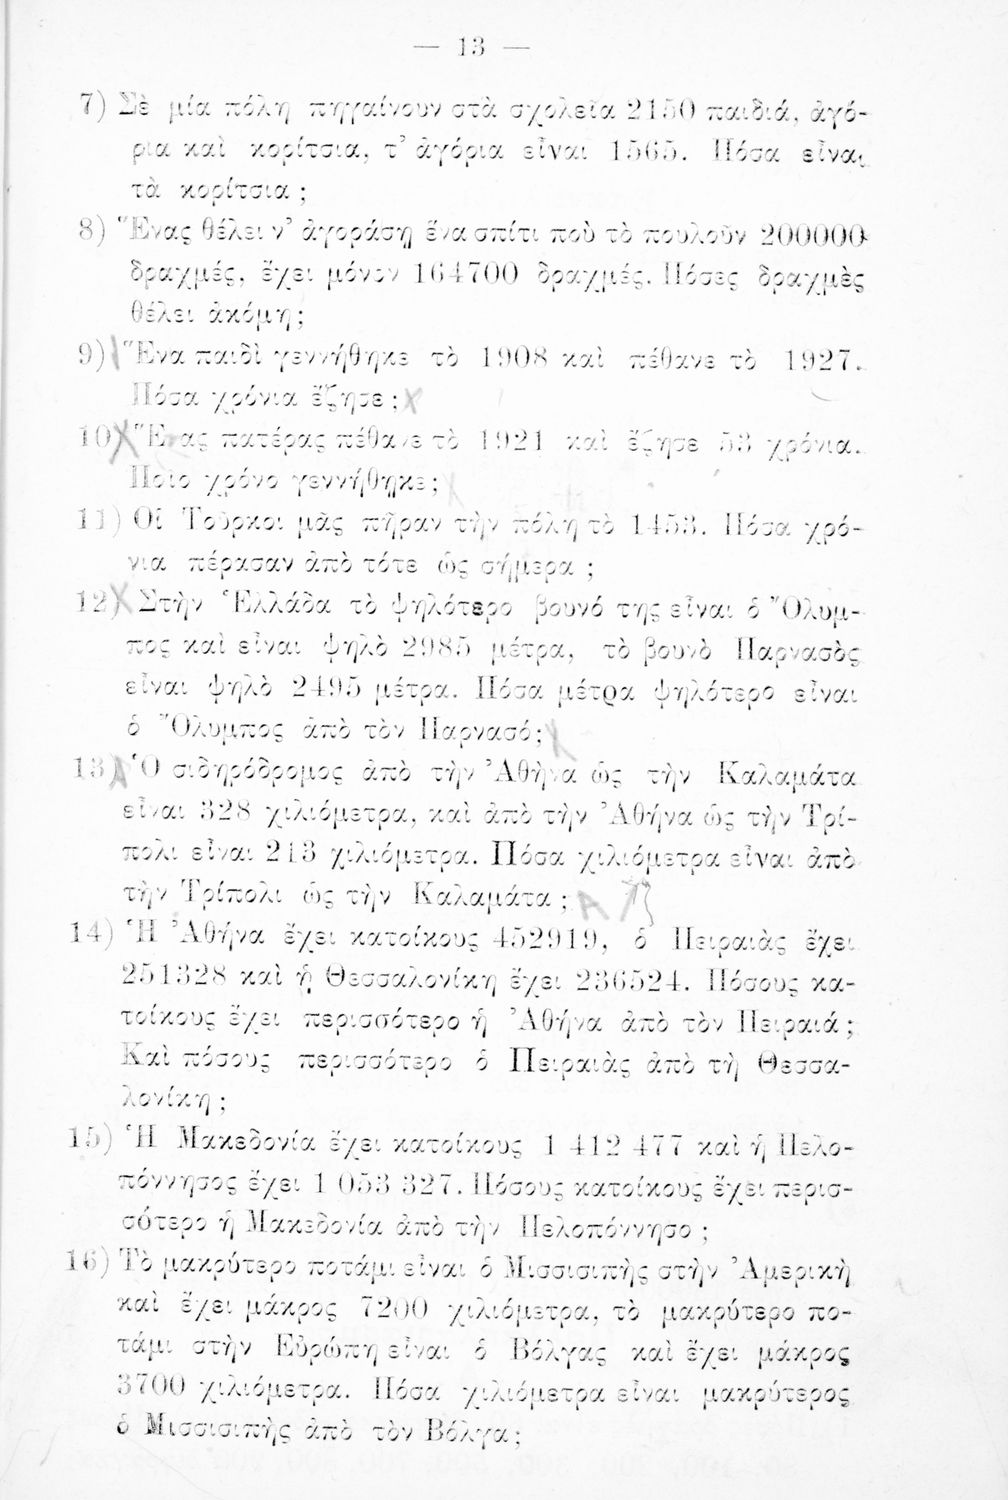 — 13 —
7) Σὲ μία πόλη πηγαίνουν στὰ σχολεῖα 2150 παιδιά, ἀγό-
ρια καὶ κορίτσια, τ' ἀγόρια εἶναι 1565. Πόσα εἶναι
τὰ κορίτσια ;
8) Ἕνας θέλει ν' ἀγοράσῃ ἕνα σπίτι ποὺ τὸ πουλοῦν 200000
δραχμές, ἔχει μόνον 164700 δραχμές. Πόσες δραχμὲς
θέλει ἀκόμη;
9) Ἕνα παιδὶ γεννήθηκε τὸ 1908 καὶ πέθανε τὸ 1927.
Πόσα χρόνια ἔζησε ;
10) Ἕνας πατέρας πέθανε τὸ 1921 καὶ ἔζησε 53 χρόνια.
Ποιο χρόνο γεννήθηκε;
11) Οἱ Τοῦρκοι μᾶς πῆραν τὴν πόλη τὸ 1453. Πόσα χρό-
νια πέρασαν ἀπὸ τότε ὣς σήμερα ;
12) Στὴν Ἑλλάδα τὸ ψηλότερο βουνό της εἶναι ὁ Ὄλυμ-
πος καὶ εἶναι ψηλὸ 2985 μέτρα, τὸ βουνὸ Παρνασὸς
εἶναι ψηλὸ 2495 μέτρα. Πόσα μέτρα ψηλότερο εἶναι
ὁ Ὄλυμπος ἀπὸ τὸν Παρνασό;
13) Ὁ σιδηρόδρομος ἀπὸ τὴν Ἀθήνα ὣς τὴν Καλαμάτα
εἶναι 328 χιλιόμετρα, καὶ ἀπὸ τὴν Ἀθήνα ὣς τὴν Τρί-
πολι εἶναι 213 χιλιόμετρα. Πόσα χιλιόμετρα εἶναι ἀπὸ
τὴν Τρίπολι ὣς τὴν Καλαμάτα ;
14) Ἡ Ἀθήνα ἔχει κατοίκους 452919, ὁ Πειραιὰς ἔχει
251328 καὶ ἡ Θεσσαλονίκη ἔχει 236524. Πόσους κα-
τοίκους ἔχει περισσότερο ἡ Ἀθήνα ἀπὸ τὸν Πειραιά ;
Καὶ πόσους περισσότερο ὁ Πειραιὰς ἀπὸ τὴ Θεσσα-
λονίκη ;
15) Ἡ Μακεδονία ἔχει κατοίκους 1 412 477 καὶ ἡ Πελο-
πόννησος ἔχει 1 053 327. Πόσους κατοίκους ἔχει περισ-
σότερο ἡ Μακεδονία ἀπὸ τὴν Πελοπόννησο ;
16) Τὸ μακρύτερο ποτάμι εἶναι ὁ Μισσισιπὴς στὴν Ἀμερικὴ
καὶ ἔχει μάκρος 7200 χιλιόμετρα, τὸ μακρύτερο πο-
τάμι στὴν Εὐρώπη εἶναι ὁ Βόλγας καὶ ἔχει μάκρος
3700 χιλιόμετρα. Πόσα χιλιόμετρα εἶναι μακρύτερος
ὁ Μισσισιπὴς ἀπὸ τὸν Βόλγα;